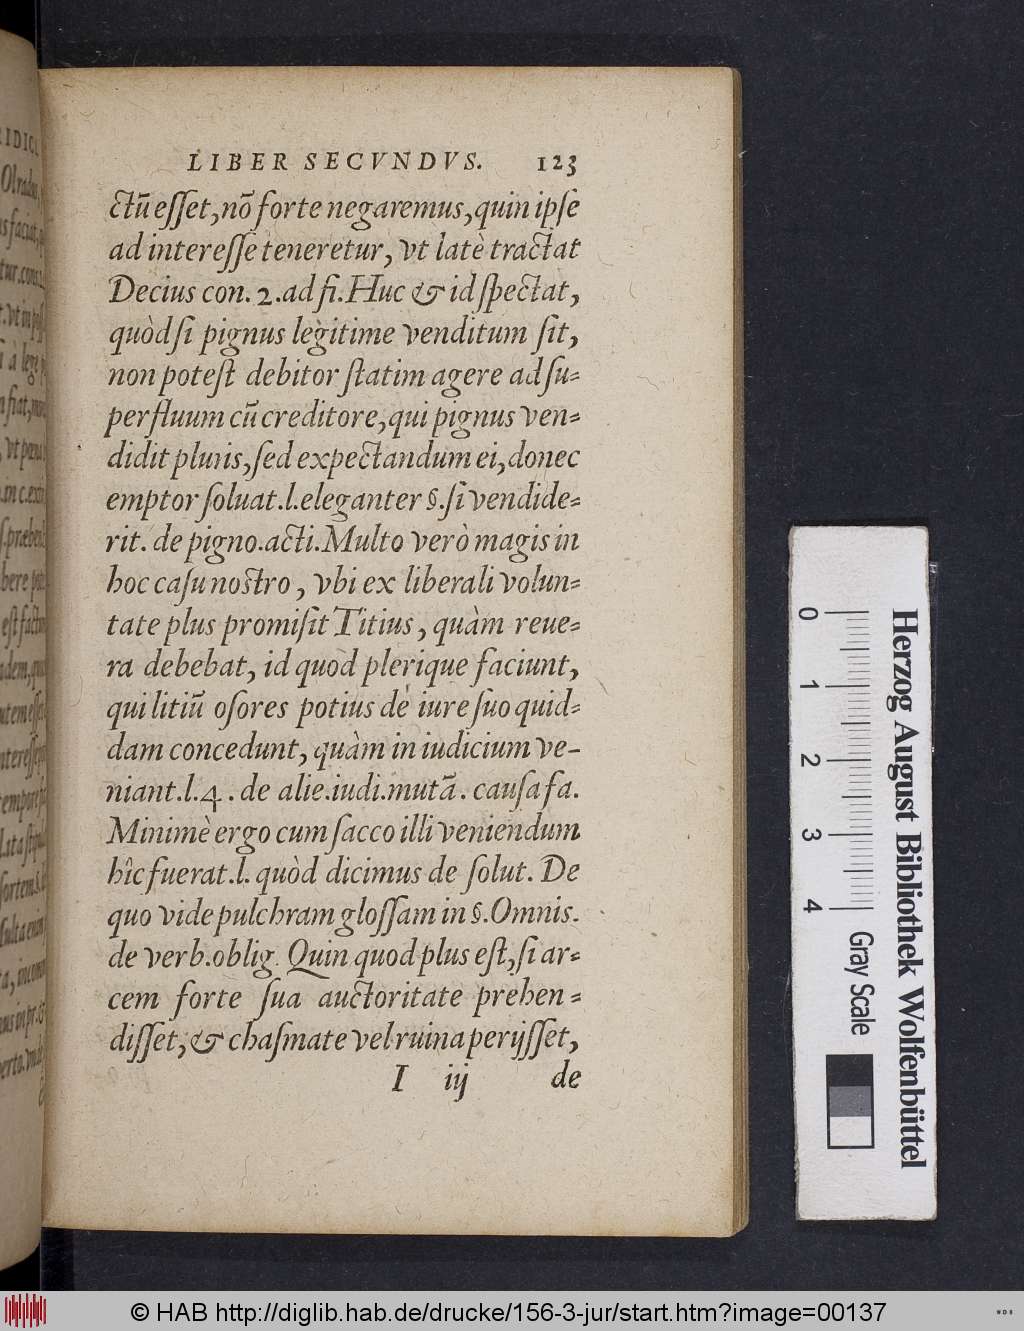 LIBER SECVNDVS. 123
ctū eſſet, nō forte negaremus, quin ipſe
ad intereſſe teneretur, vt latè tractat
Decius con. 2. ad fi. Huc & id ſpectat,
quòd ſi pignus legitime venditum ſit,
non poteſt debitor ſtatim agere ad ſu-
perfluum cū creditore, qui pignus ven-
didit pluris, ſed expectandum ei, donec
emptor ſoluat. l. eleganter §. ſi vendide-
rit. de pigno. acti. Multo verò magis in
hoc caſu nostro, vbi ex liberali volun-
tate plus promiſit Titius, quàm reue-
ra debebat, id quod plerique faciunt,
qui litiū oſores potius de iure ſuo quid-
dam concedunt, quàm in iudicium ve-
niant. l. 4. de alie. iudi. mutā. cauſa fa.
Minimè ergo cum ſacco illi veniendum
hîc fuerat. l. quòd dicimus de ſolut. De
quo vide pulchram gloſſam in §. Omnis.
de verb. oblig. Quin quod plus eſt, ſi ar-
cem forte ſua auctoritate prehen-
diſſet, & chaſmate vel ruina perijſſet,
I iij de
RIDICI
Olradus
0 1 2 3 4
Gray Scale
Herzog August Bibliothek Wolfenbüttel
© HAB http://diglib.hab.de/drucke/156-3-jur/start.htm?image=00137